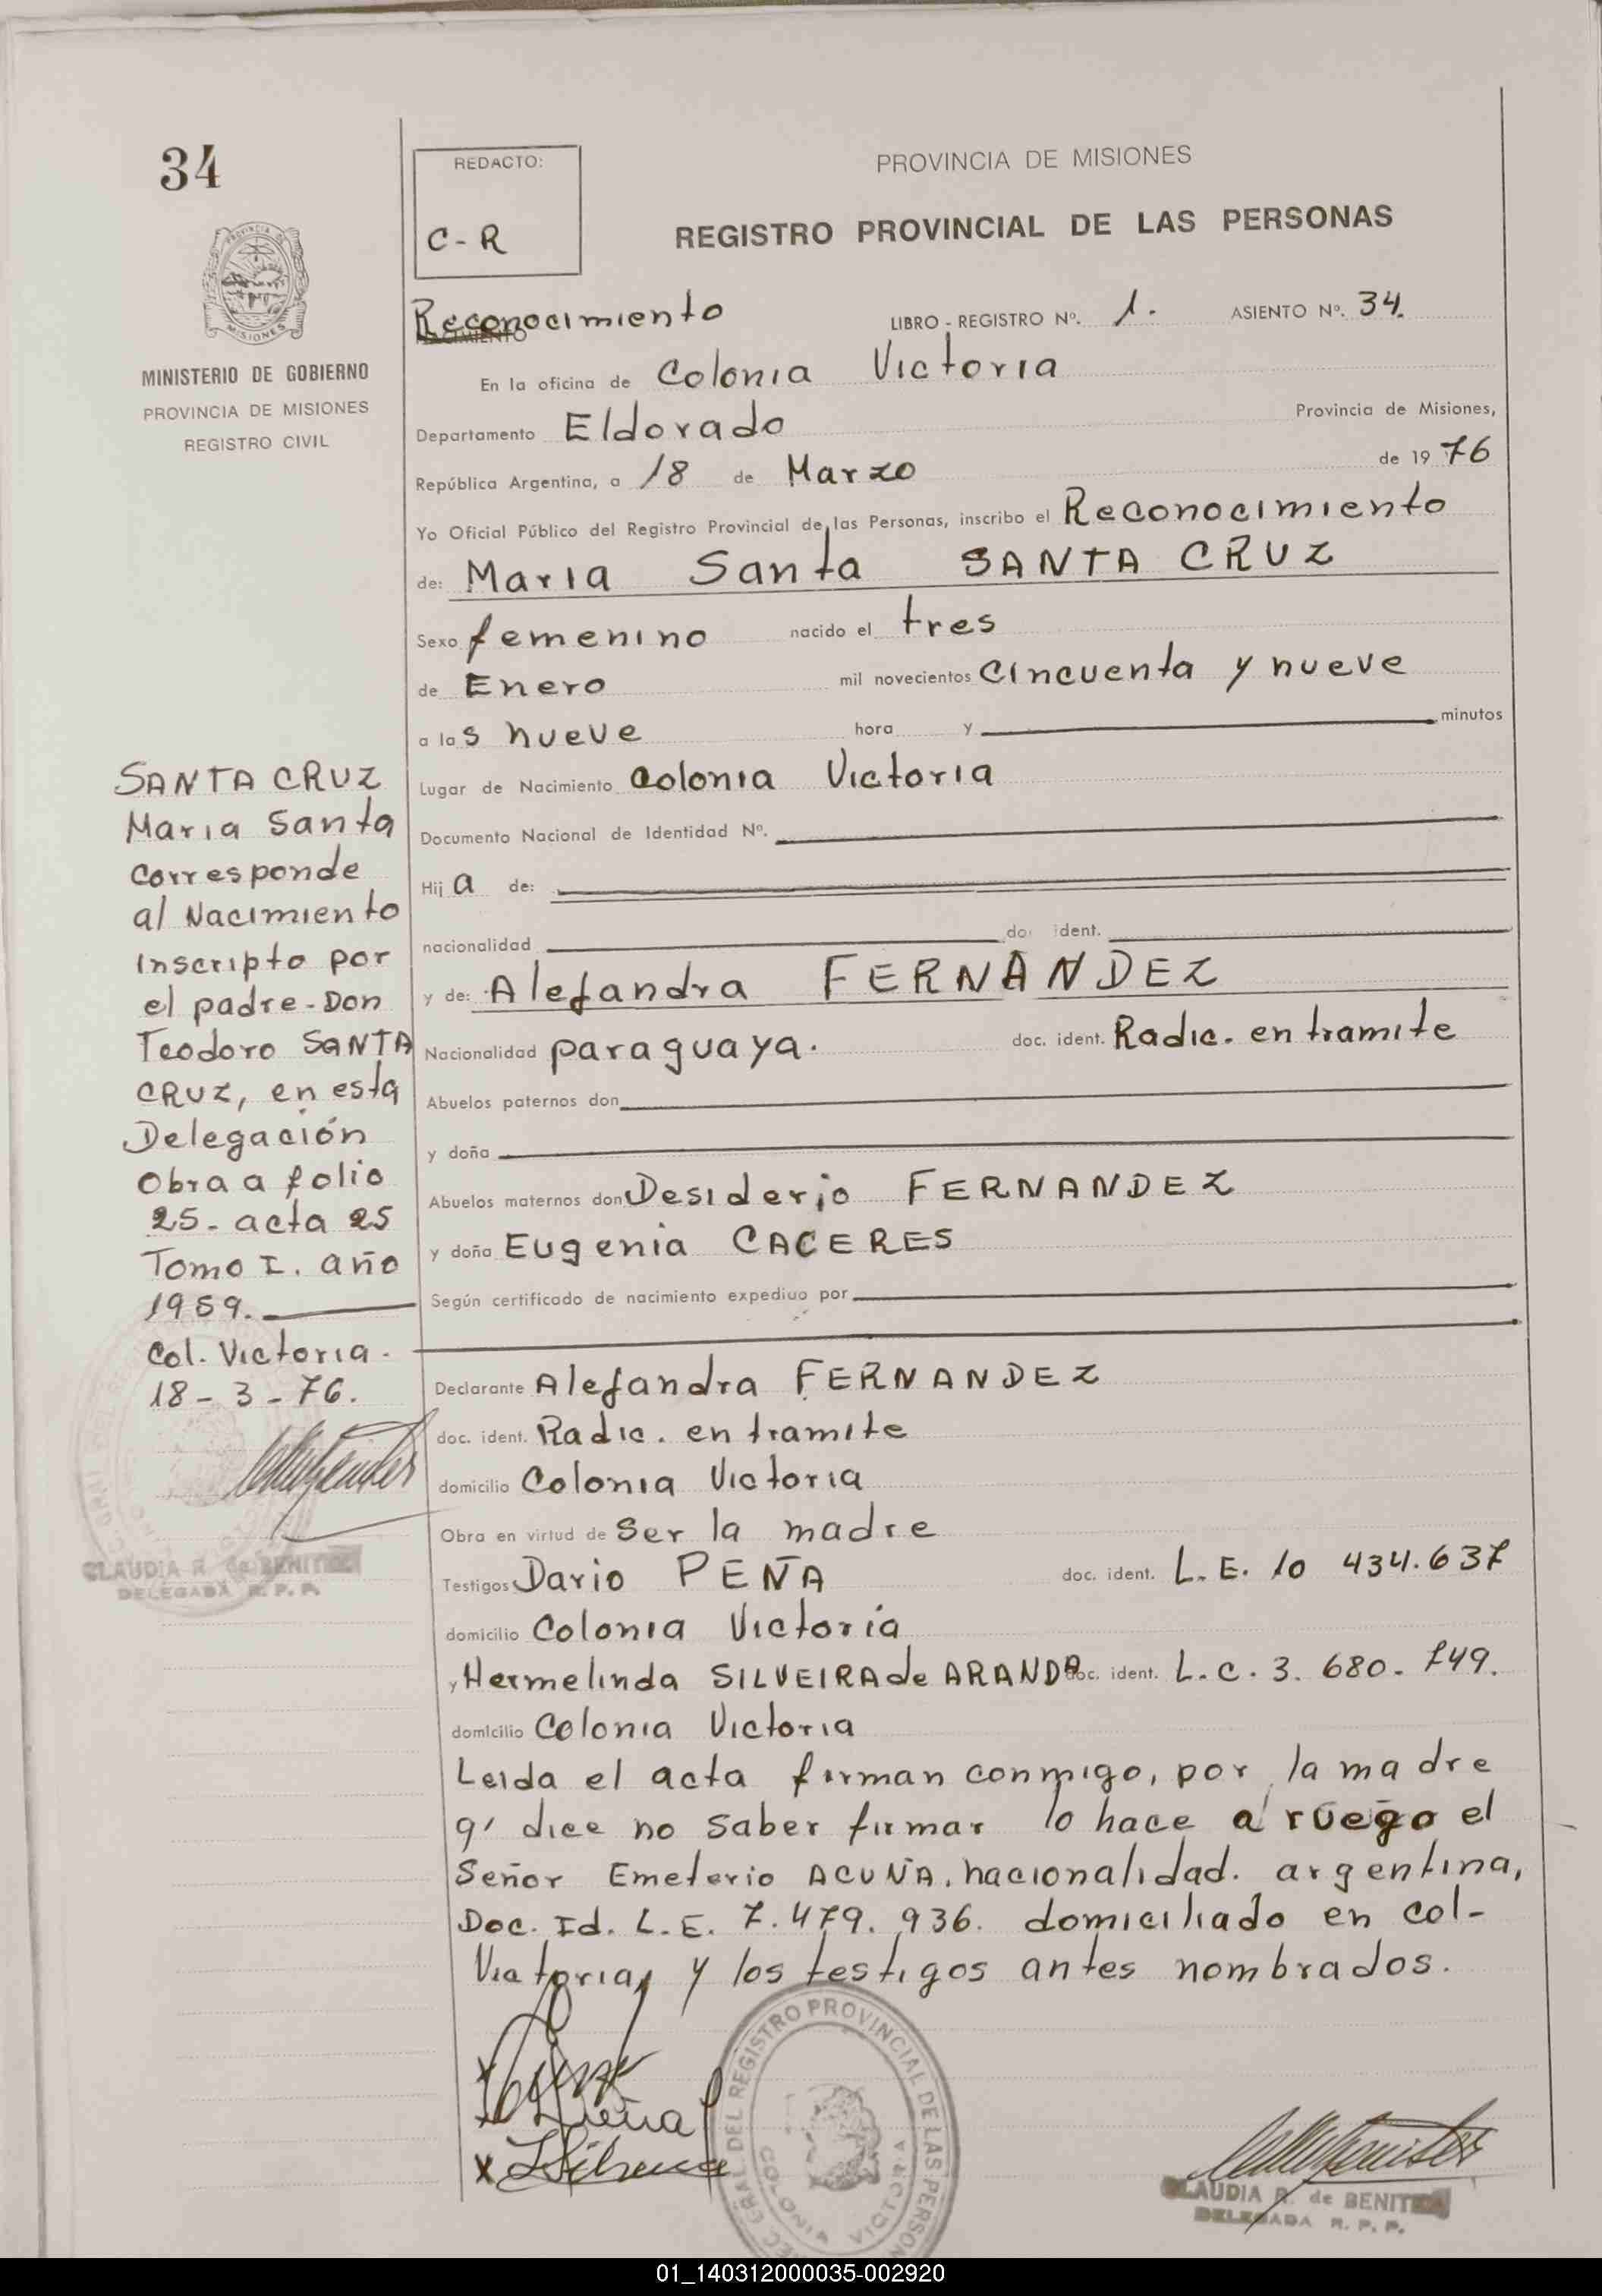 34
REDACTO:
C-R
PROVINCIA DE MISIONES
REGISTRO PROVINCIAL DE LAS PERSONAS
MISIONES
MINISTERIO DE GOBIERNO
PROVINCIA DE MISIONES
REGISTRO CIVIL
Reconocimiento LIBRO - REGISTRO Nº. 1. ASIENTO Nº. 34.
En la oficina de Colonia Victoria
Departamento Eldorado Provincia de Misiones,
República Argentina, a 18 de Marzo de 1976
Yo Oficial Público del Registro Provincial de las Personas, inscribo el Reconocimiento
de: Maria Santa SANTA CRUZ
Sexo femenino nacido el tres
de Enero mil novecientos Cincuenta y nueve
a las nueve hora y minutos
Lugar de Nacimiento Colonia Victoria
Documento Nacional de Identidad Nº.
Hija de:
nacionalidad do ident.
y de: Alejandra FERNANDEZ
Nacionalidad paraguaya. doc. ident. Radic. en tramite
Abuelos paternos don
y doña
Abuelos maternos don Desiderio FERNANDEZ
y doña Eugenia CACERES
Según certificado de nacimiento expedido por
Declarante Alejandra FERNANDEZ
doc. ident. Radic. en tramite
domicilio Colonia Victoria
Obra en virtud de Ser la madre
Testigos Dario PEÑA doc. ident. L.E. 10 434.637
domicilio Colonia Victoria
y Hermelinda SILVEIRA de ARANDA doc. ident. L.C. 3. 680. 749.
domicilio Colonia Victoria
Leida el acta firman conmigo, por la madre
q' dice no saber firmar lo hace a ruego el
Señor Emeterio ACUÑA, nacionalidad. argentina,
Doc. Id. L.E. 7.479.936. domiciliado en col-
Victoria, y los testigos antes nombrados.
SANTA CRUZ
Maria Santa
Corresponde
al Nacimiento
Inscripto por
el padre-Don
Teodoro SANTA
CRUZ, en esta
Delegación
Obra a folio
25- acta 25
Tomo I. año
1959.
Col. Victoria.
18-3-76.
CLAUDIA R. de BENITEZ
DELEGADA R. P. P.
DEL REGISTRO PROVINCIAL DE LAS PERSON
COLONIA VICTORIA
CLAUDIA R. de BENITEZ
DELEGADA R. P. P.
01_140312000035-002920